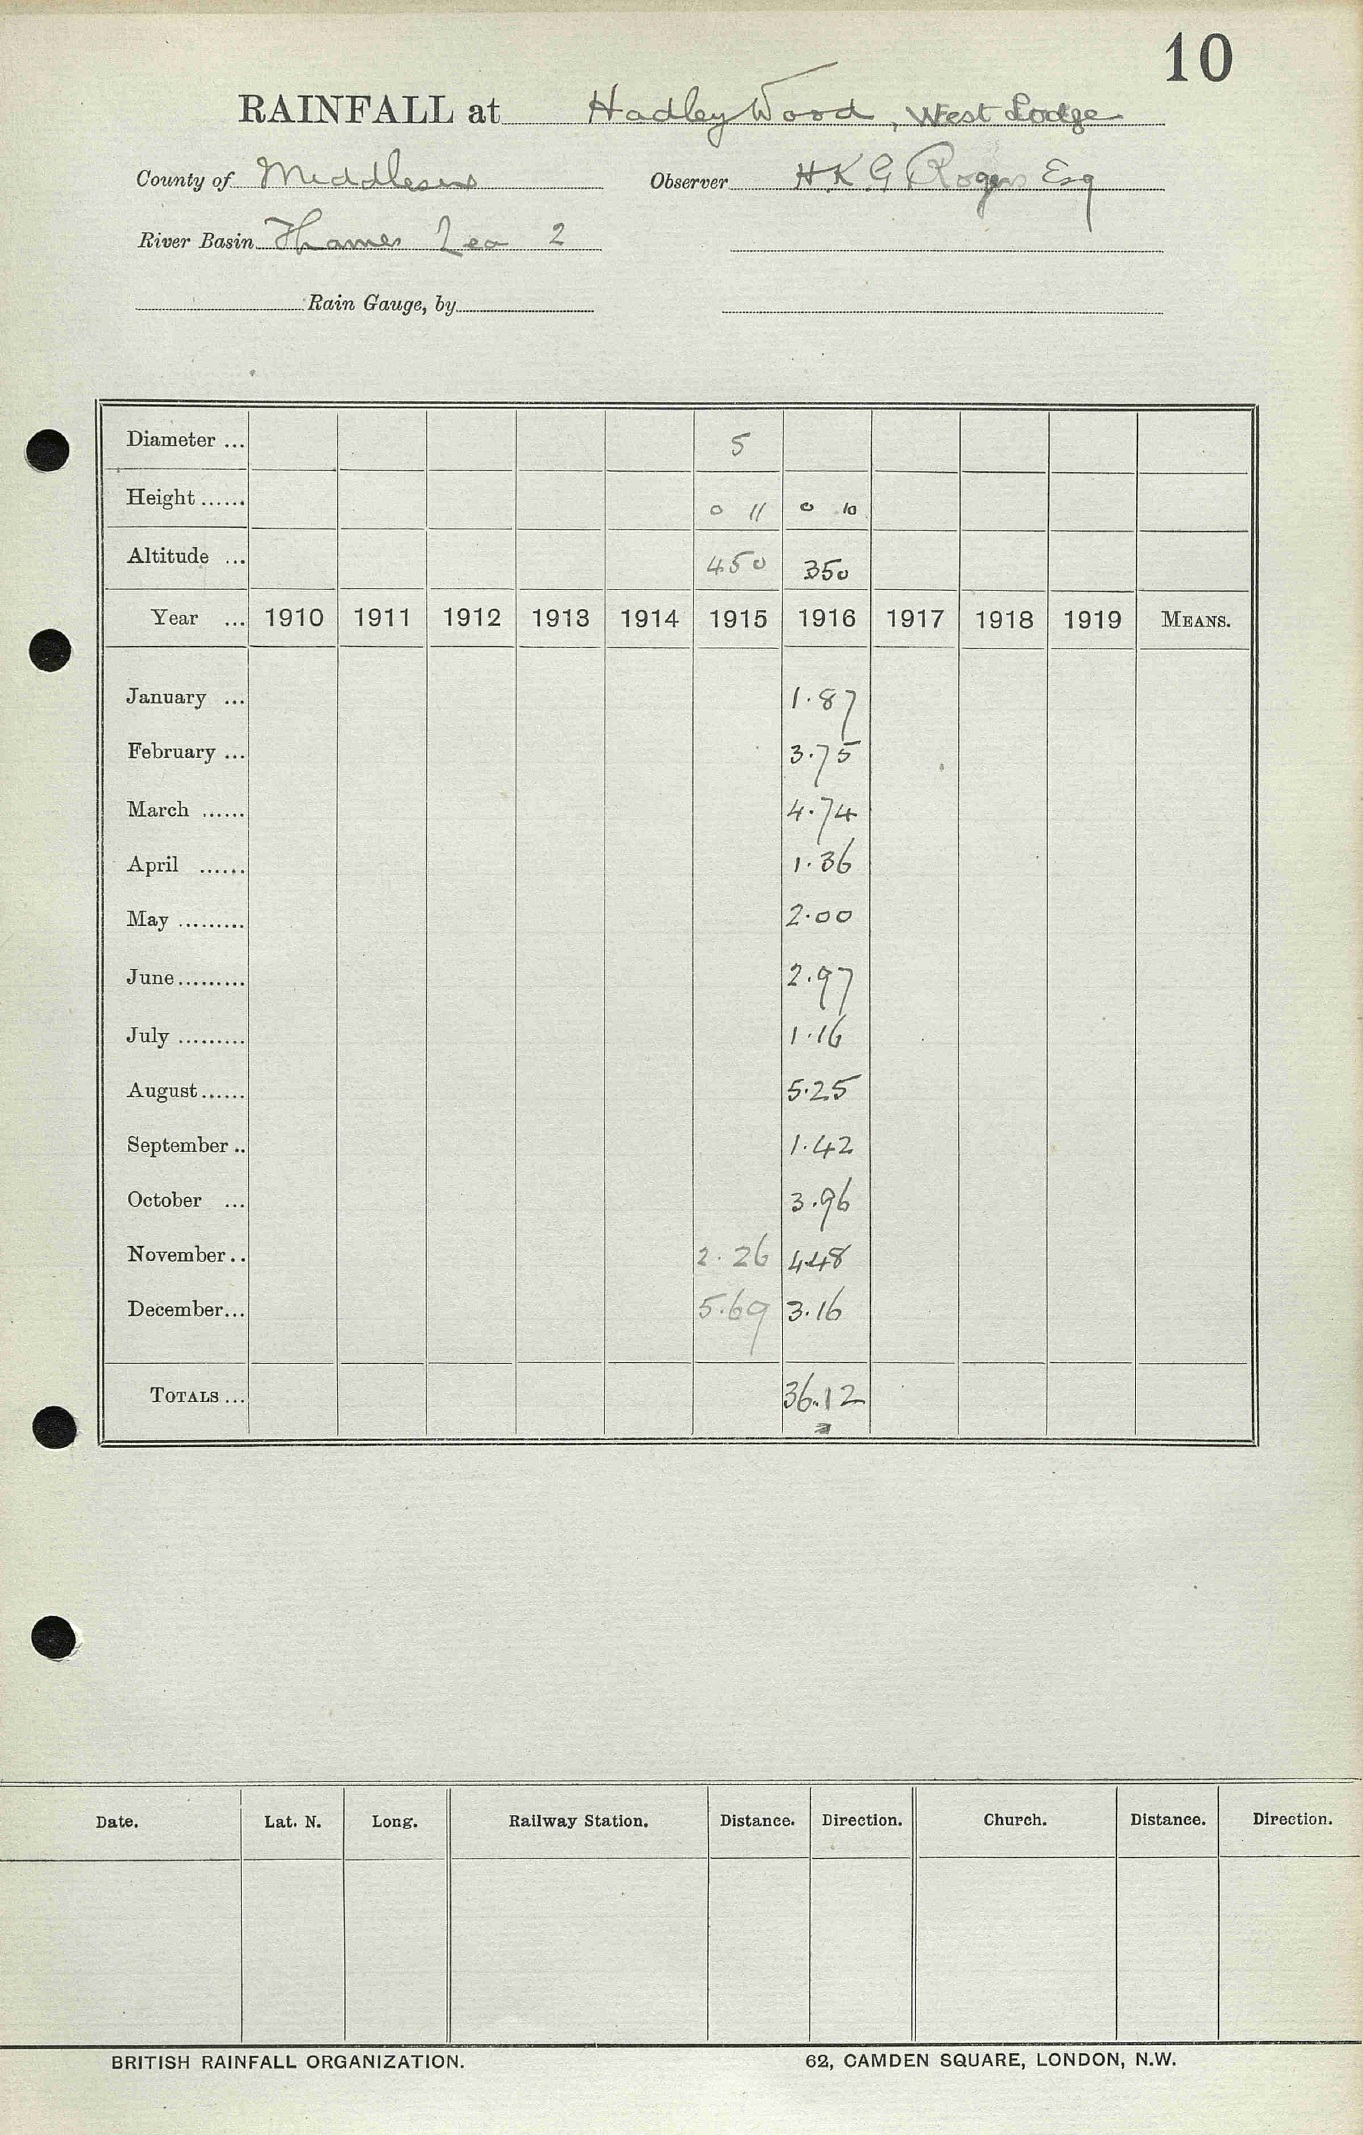 10
RAINFALL at Hadley Wood, West Lodge
County of Middlesex Observer H K G Rogers Esq
River Basin Thames Lea 2
Rain Gauge, by
Diameter ... 5
Height ...... 0 11 0 10
Altitude ... 450 350
Year ... 1910 1911 1912 1913 1914 1915 1916 1917 1918 1919 MEANS.
January ... 1.87
February ... 3.75
March ...... 4.74
April ...... 1.36
May ......... 2.00
June ......... 2.97
July ......... 1.16
August ...... 5.25
September .. 1.42
October ... 3.96
November .. 2.26 4.48
December ... 5.69 3.16
TOTALS ... 36.12
Date. Lat. N. Long. Railway Station. Distance. Direction. Church. Distance. Direction.
BRITISH RAINFALL ORGANIZATION. 62, CAMDEN SQUARE, LONDON, N.W.